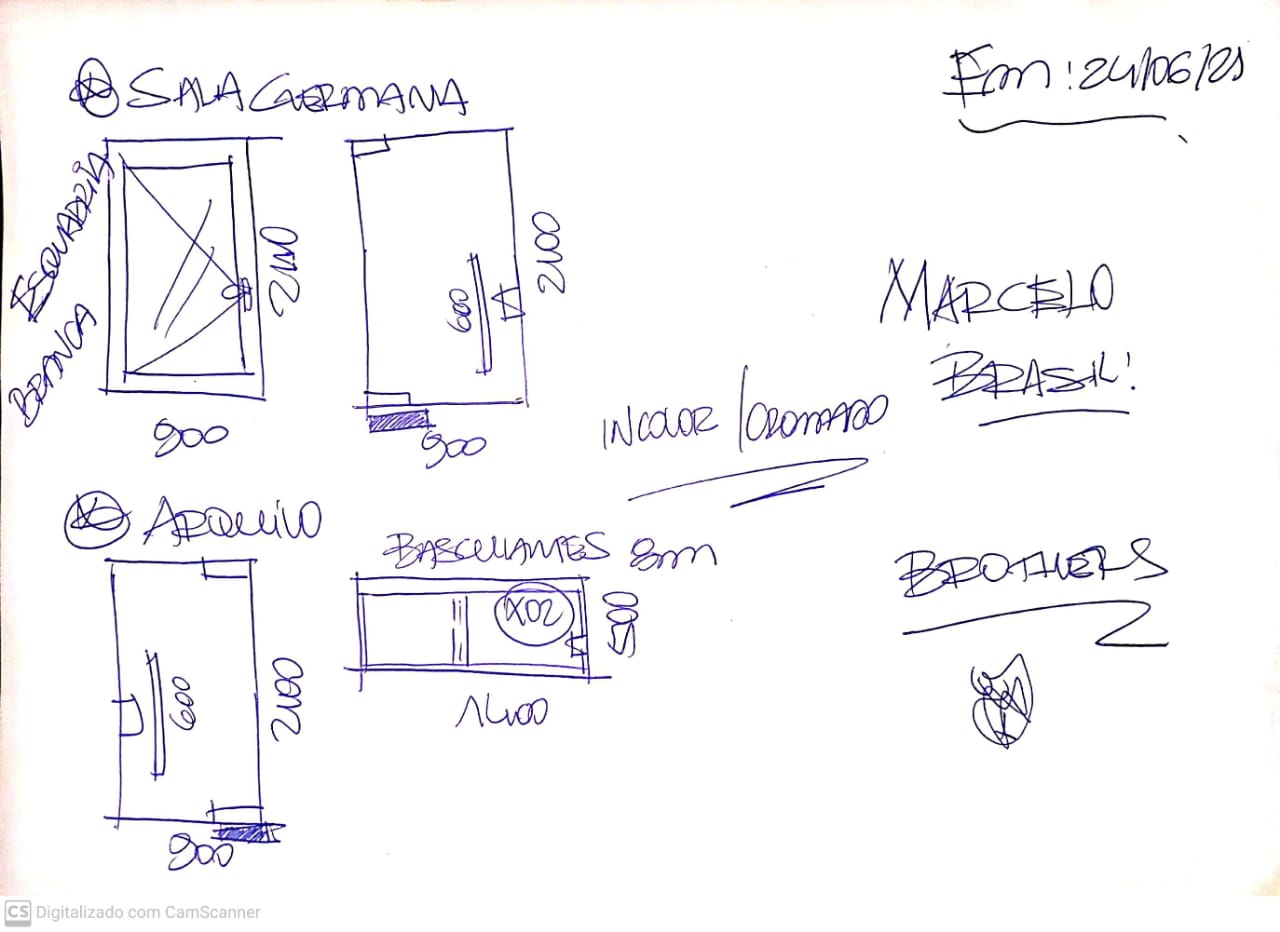 SALA GERMANA
Em: 24/06/21
ESQUADRIA
BRANCA
2100
900
600
2100
900
INCOLOR / CROMADO
MARCELO
BRASIL!
ARQUIVO
600
2100
900
BASCULANTES 8mm
X02
500
1400
BROTHERS
CS Digitalizado com CamScanner